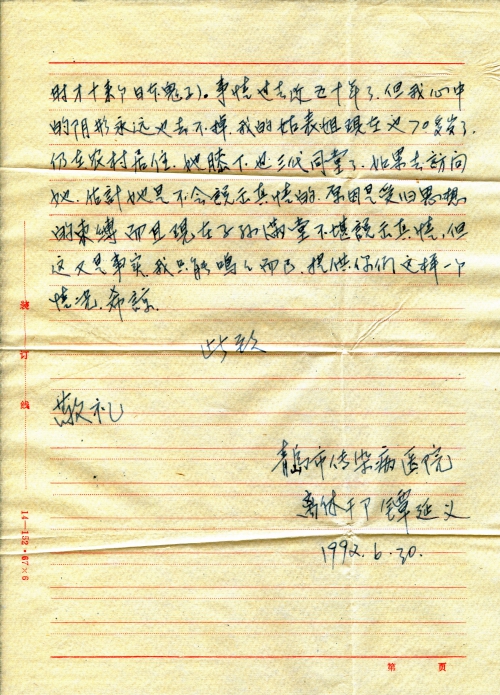 时才十来个日本鬼子)。事情过去近五十年了,但我心中
的阴影永远也去不掉,我的姑表姐现在也70多岁了,
仍在农村居住,她膝下也三代同堂了,如果去访问
她,估计她是不会说出真情的,原因是受旧思想
的束缚而且现在子孙满堂不堪说出真情,但
这又是事实,我只能鸣人而已,提供你们这样一个
情况,希谅.
此致
敬礼
青岛市传染病医院
离休干部 谭延义
1992.6.30.
装
订
线
14—152·67×6
第 页